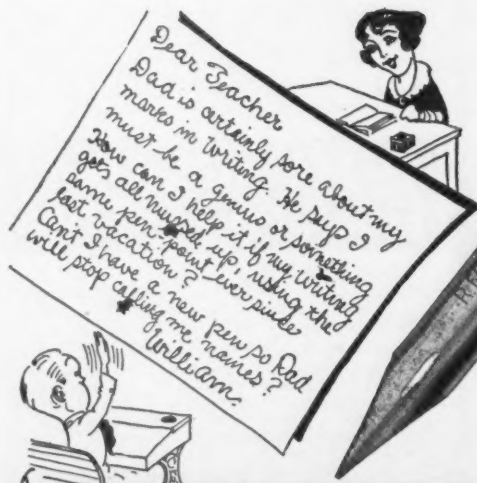 Dear Teacher
Dad is certainly sore about my
marks in writing. He says I
must be a genius or something
How can I help it if my writing
gets all mussed up, using the
same pen point ever since
last vacation?
Can't I have a new pen so Dad
will stop calling me names?
William.